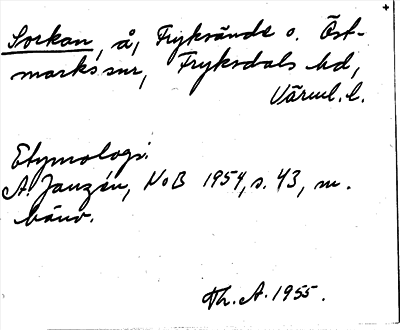 Sorkan, å, Fryksände o. Öst-
marks snr, Fryksdals hd,
Värml. l.
Etymologi.
A. Janzén, NoB 1954, s. 43, m.
hänv.
Th. A. 1955.